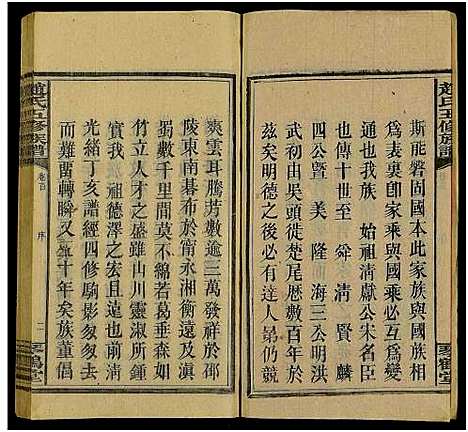 趙氏五修族譜
琴鶴堂
斯能磐固國本此家族與國族相
為表裏卽家乘與國乘必互為變
通也我族 始祖清獻公宋名臣
也傳十世 舜 清 賢 麟
四公則暨 美 隆 海三公明洪
武初由吳頭徙楚尾價數百年於
茲矣明德之後必有達人晜仍競
爽雲耳騰芳數逾三萬發祥於邵
陵東南棊布於甯永湘衡遠及滇
蜀數千里間莫不綿若葛垂森如
竹立人才之盛雖山川靈淑所鍾
實我 祖德澤之宏且遠也前清
光緒丁亥譜經四修駒影匆匆去
而難留轉瞬又數十年矣族董倡
趙氏五修族譜
卷首
序
二
琴鶴堂